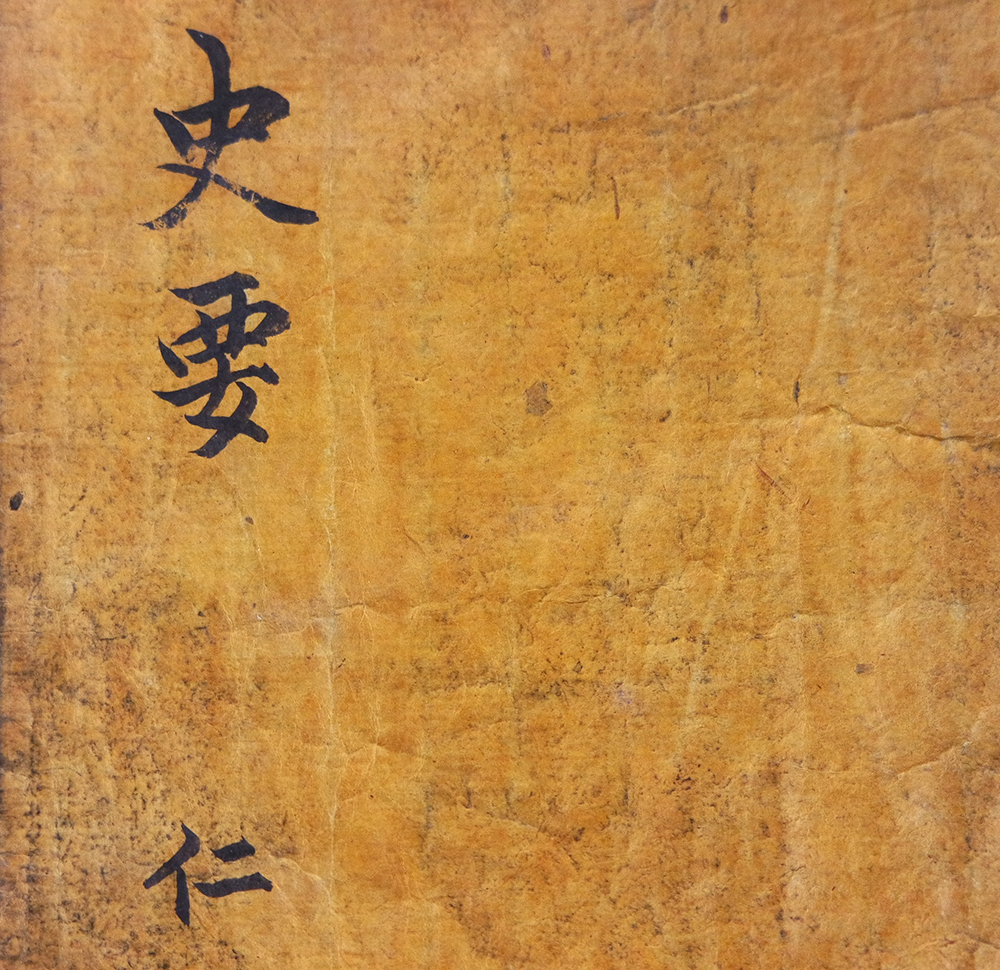 史要
仁